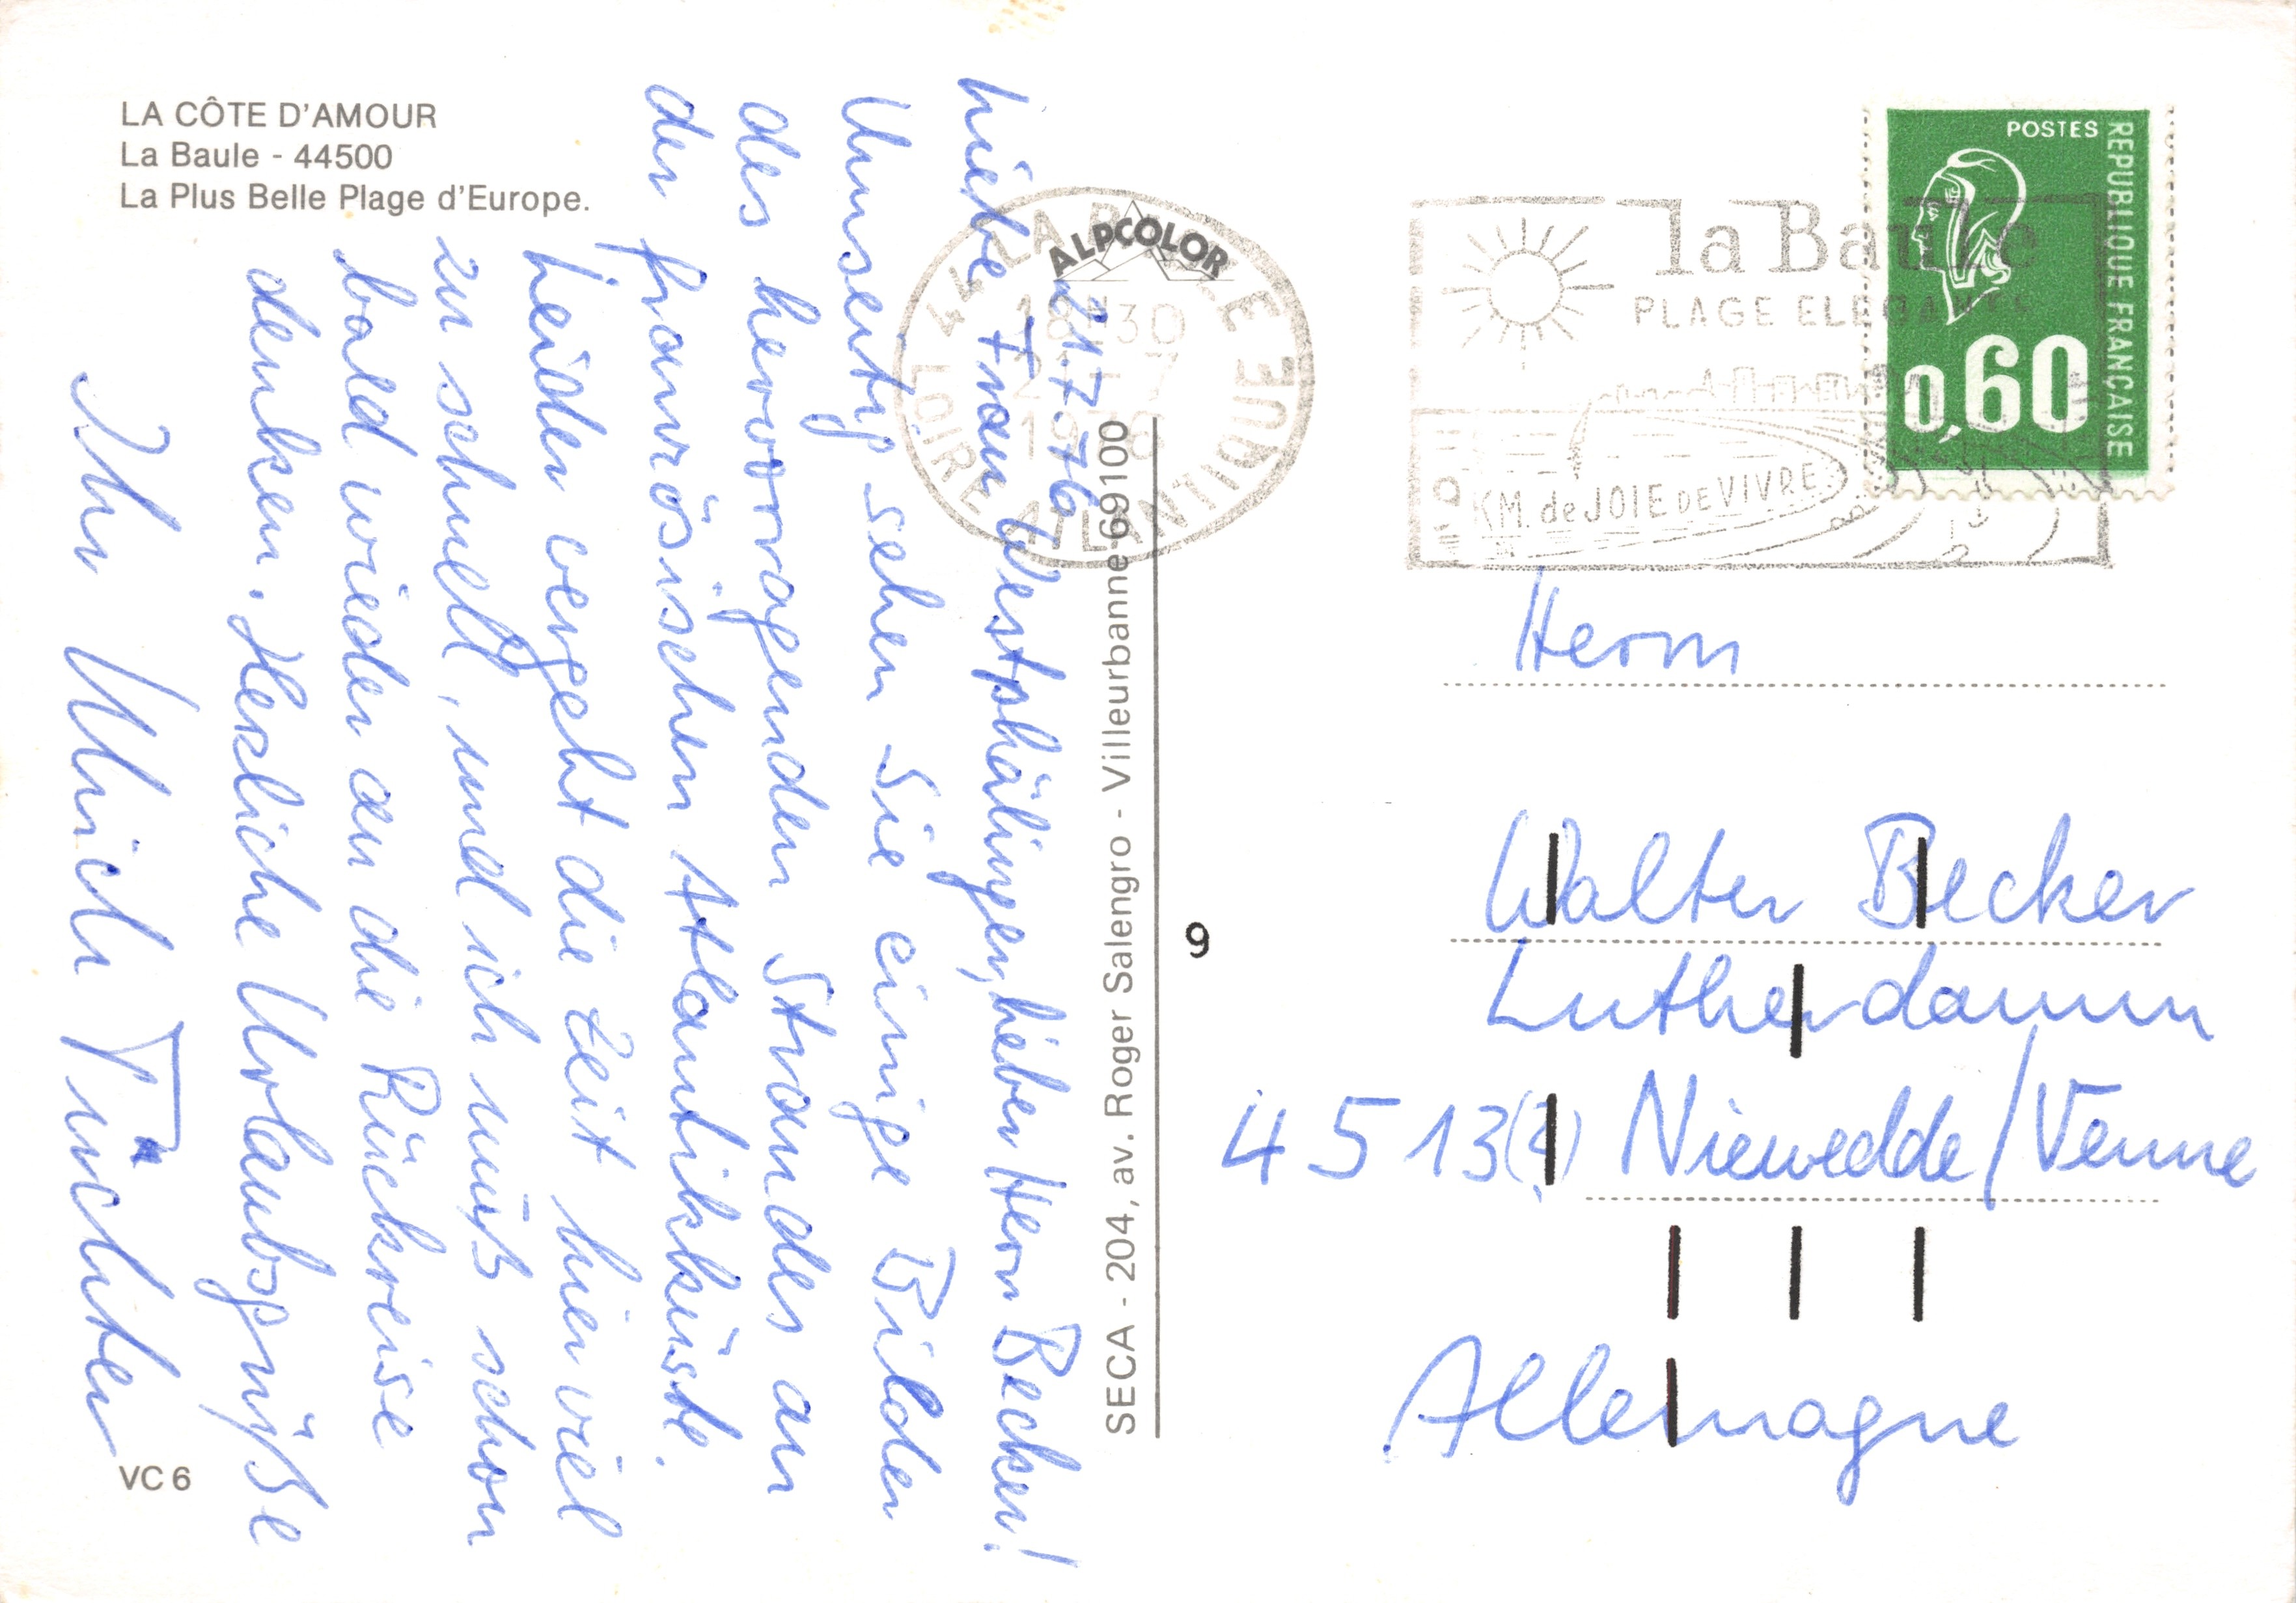 LA CÔTE D'AMOUR
La Baule - 44500
La Plus Belle Plage d'Europe.
21.7.76
Liebe Frau Westphälinger, lieber Herr Becker!
Umseitig sehen Sie einige Bilder
des hervorragenden Strandes an
der französischen Atlantikküste.
Leider vergeht die Zeit hier viel
zu schnell, und ich muß schon
bald wieder an die Rückreise
denken. Herzliche Urlaubsgrüße
Ihr Ulrich
VC 6
ALPCOLOR
SECA - 204, av. Roger Salengro - Villeurbanne 69100
44 LA BAULE
18 H 30
21 - 7
1976
LOIRE ATLANTIQUE
la Baule
PLAGE ELEGANTE
9 KM. de JOIE DE VIVRE
POSTES
REPUBLIQUE FRANÇAISE
0,60
Herrn
Walter Becker
Lutherdamm
4513(?) Niewedde/Venne
Allemagne
9